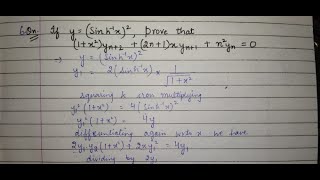 6 Qn. If y = (Sinh⁻¹x)², prove that
(1+x²)yₙ₊₂ + (2n+1)x yₙ₊₁ + n²yₙ = 0
⇒ y = (Sinh⁻¹x)²
y₁ = 2(Sinh⁻¹x) × 1/√(1+x²)
squaring
y₁²(1+x²) = 4(Sinh⁻¹x)²
y₁²(1+x²) = 4y
differentiating again with x we have
2y₁y₂(1+x²) + 2xy₁² = 4y₁
dividing by 2y₁